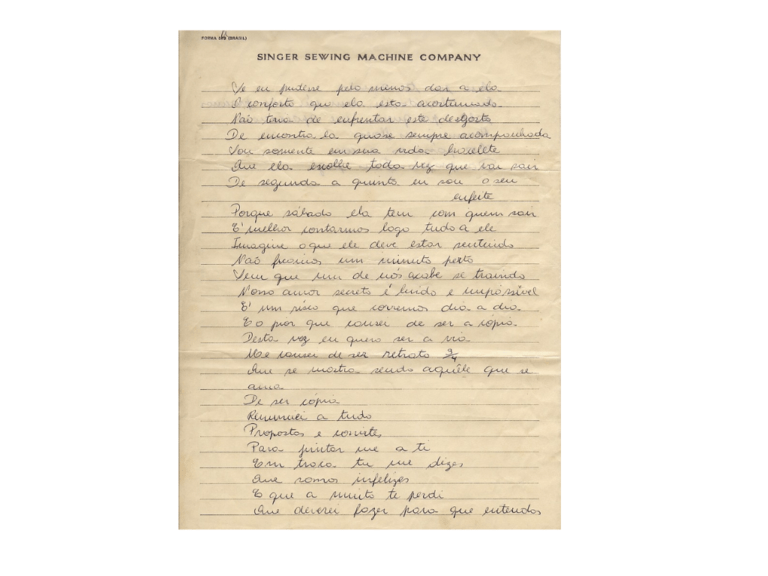 FORMA (BRASIL)
SINGER SEWING MACHINE COMPANY
Se eu pudesse pelo menos dar a ela
O conforto que ela esta acostumada
Não teria de enfrentar este desgosto
De encontra-la quase sempre acompanhada
Sou somente em sua vida bracelete
Que ela escolhe toda vez que vai sair
De segunda a quinta eu sou o seu
enfeite
Porque sábado ela tem com quem sair
É melhor contarmos logo tudo a ele
Imagine o que ele deve estar sentindo
Não ficamos um minuto perto
Sem que um de nós acabe se traindo
Nosso amor secreto é lindo e impossível
É um risco que corremos dia a dia
E o pior que cansei de ser a copia
Desta vez eu quero ser a via
Me cansei de ser retrato 3/4
Que se mostra sendo aquêle que se
ama
De ser copia
Renunciei a tudo
Propostas e convites
Para juntar me a ti
Em troca tu me dizes
Que somos infelizes
E que a muito te perdi
Que deverei fazer para que entendas